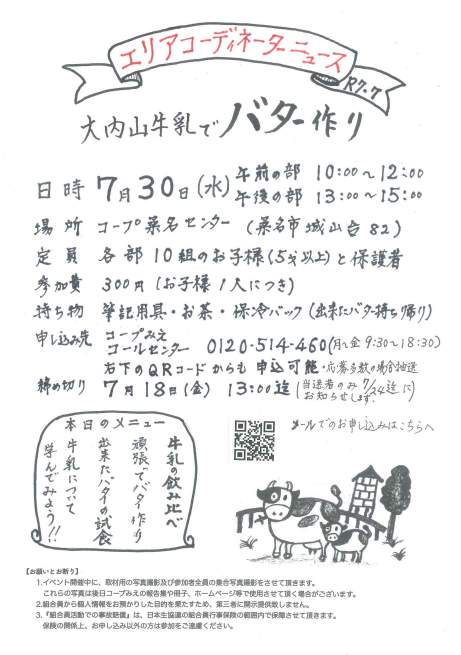 エリアコーディネーターニュース
R7.7
大内山牛乳でバター作り
日時 7月30日(水) 午前の部 10:00～12:00
午後の部 13:00～15:00
場所 コープ桑名センター (桑名市城山台82)
定員 各部10組のお子様(5才以上)と保護者
参加費 300円(お子様1人につき)
持ち物 筆記用具・お茶・保冷バック(出来たバター持ち帰り)
申し込み先 コープみえ
コールセンター 0120-514-460(月～金 9:30～18:30)
右下のQRコードからも申込可能・応募多数の場合抽選
締め切り 7月18日(金) 13:00迄(当選者のみ7/24迄に
お知らせします)
本日のメニュー
牛乳の飲み比べ
頑張ってバター作り
出来たバターの試食
牛乳について
学んでみよう!!
メールでのお申し込みはこちらへ
【お願いとお断り】
1.イベント開催中に、取材用の写真撮影及び参加者全員の集合写真撮影をさせて頂きます。
これらの写真は後日コープみえの報告集や冊子、ホームページ等で使用させて頂く場合がございます。
2.組合員から個人情報をお預かりした目的を果たすため、第三者に開示提供致しません。
3.『組合員活動での事故賠償』は、日本生協連の組合員行事保険の範囲内で保障させて頂きます。
保険の関係上、お申し込み以外の方は参加をご遠慮ください。